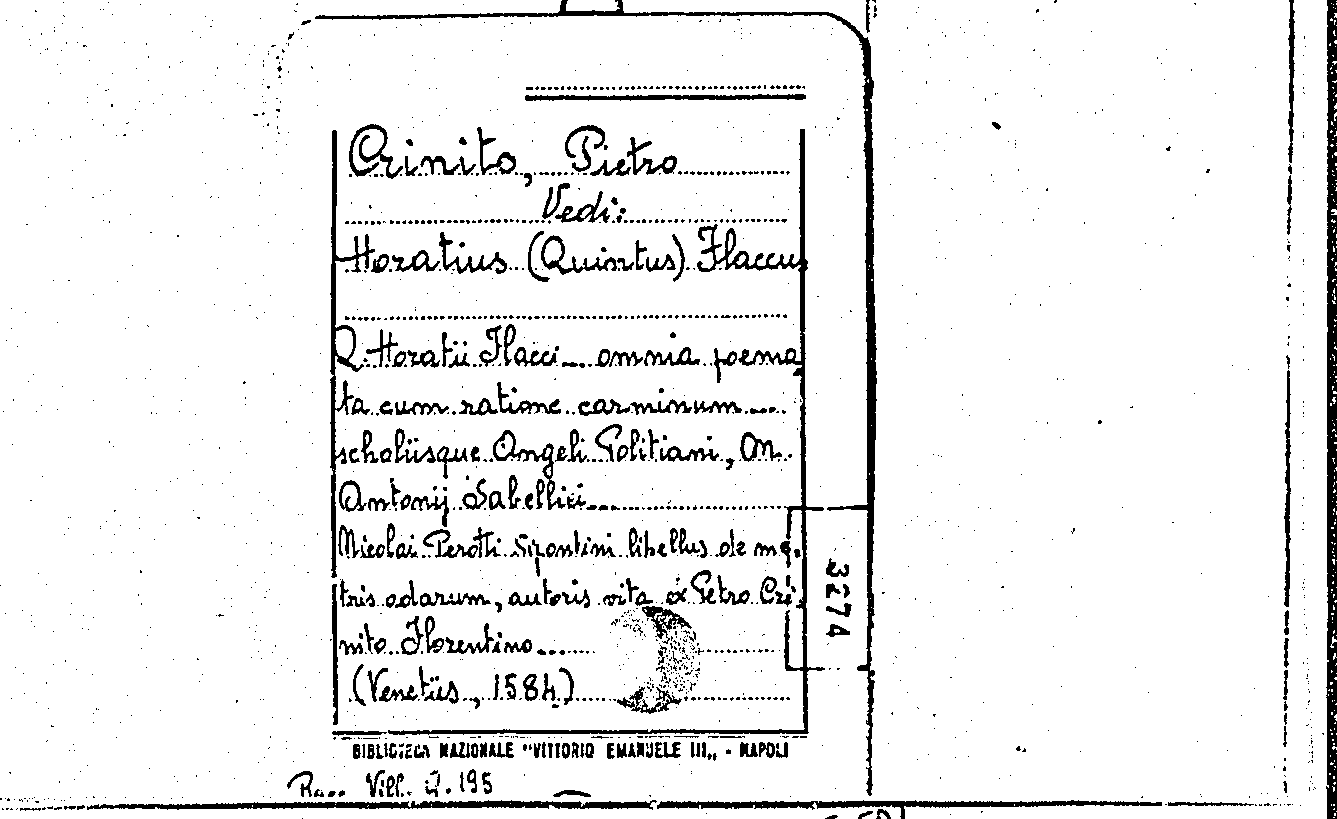 Crinito, Pietro
Vedi:
Horatius (Quintus) Flaccus
Q. Horatii Flacci... omnia poema
ta cum ratione carminum....
scholiisque Angeli Politiani, M.
Antonij Sabellici...
Nicolai Perotti Sipontini libellus de me-
tris odarum, autoris vita ex Petro Cri-
nito Florentino...
(Venetiis, 1584)
3274
BIBLIOTECA NAZIONALE "VITTORIO EMANUELE III„ - NAPOLI
Rac. Vill. Q. 195